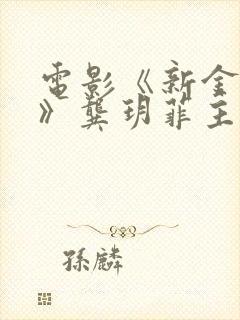 電影《新金
》龔玥菲主
孫麟